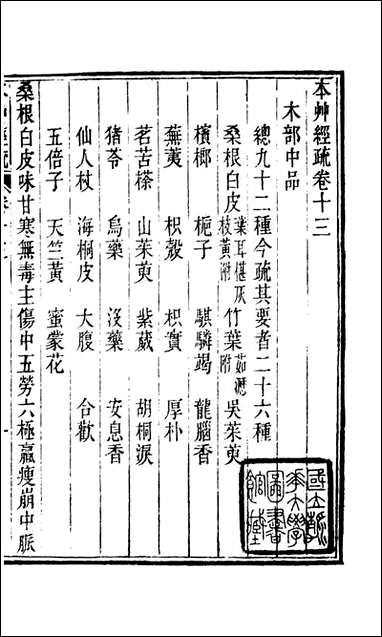 本艸經疏卷十三
木部中品
總九十二種今疏其要者二十六種
桑根白皮 葉耳椹灰枝黃附 竹葉 茹瀝附 吳茱萸
檳榔 梔子 騏驎竭 龍腦香
蕪荑 枳殼 枳實 厚朴
茗苦𣘻 山茱萸 紫葳 胡桐淚
猪苓 烏藥 沒藥 安息香
仙人杖 海桐皮 大腹 合歡
五倍子 天竺黃 蜜蒙花
桑根白皮味甘寒無毒主傷中五勞六極羸瘦崩中脈
國立
大學
圖書
館